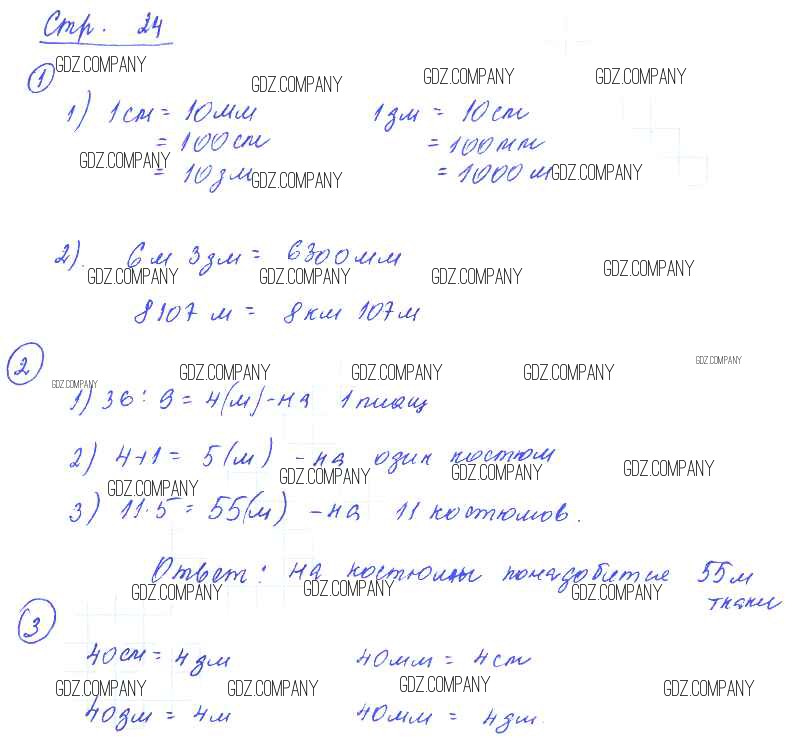 Стр. 24
GDZ.COMPANY GDZ.COMPANY GDZ.COMPANY GDZ.COMPANY
1
1) 1см = 10мм 1дм = 10см
= 100см = 100мм
GDZ.COMPANY GDZ.COMPANY GDZ.COMPANY
= 10дм = 1000м
2). 6м 3дм = 6300мм
GDZ.COMPANY GDZ.COMPANY GDZ.COMPANY GDZ.COMPANY
8107 м = 8км 107м
2
GDZ.COMPANY GDZ.COMPANY GDZ.COMPANY GDZ.COMPANY GDZ.COMPANY
1) 36 : 9 = 4(м) - на 1 плащ
2) 4+1 = 5(м) - на один костюм
GDZ.COMPANY GDZ.COMPANY GDZ.COMPANY GDZ.COMPANY
3) 11·5 = 55(м) - на 11 костюмов.
Ответ: на костюмы понадобится 55м
ткани
GDZ.COMPANY GDZ.COMPANY GDZ.COMPANY
3
40см = 4дм 40мм = 4см
GDZ.COMPANY GDZ.COMPANY GDZ.COMPANY GDZ.COMPANY
40дм = 4м 40мм = 4дм.